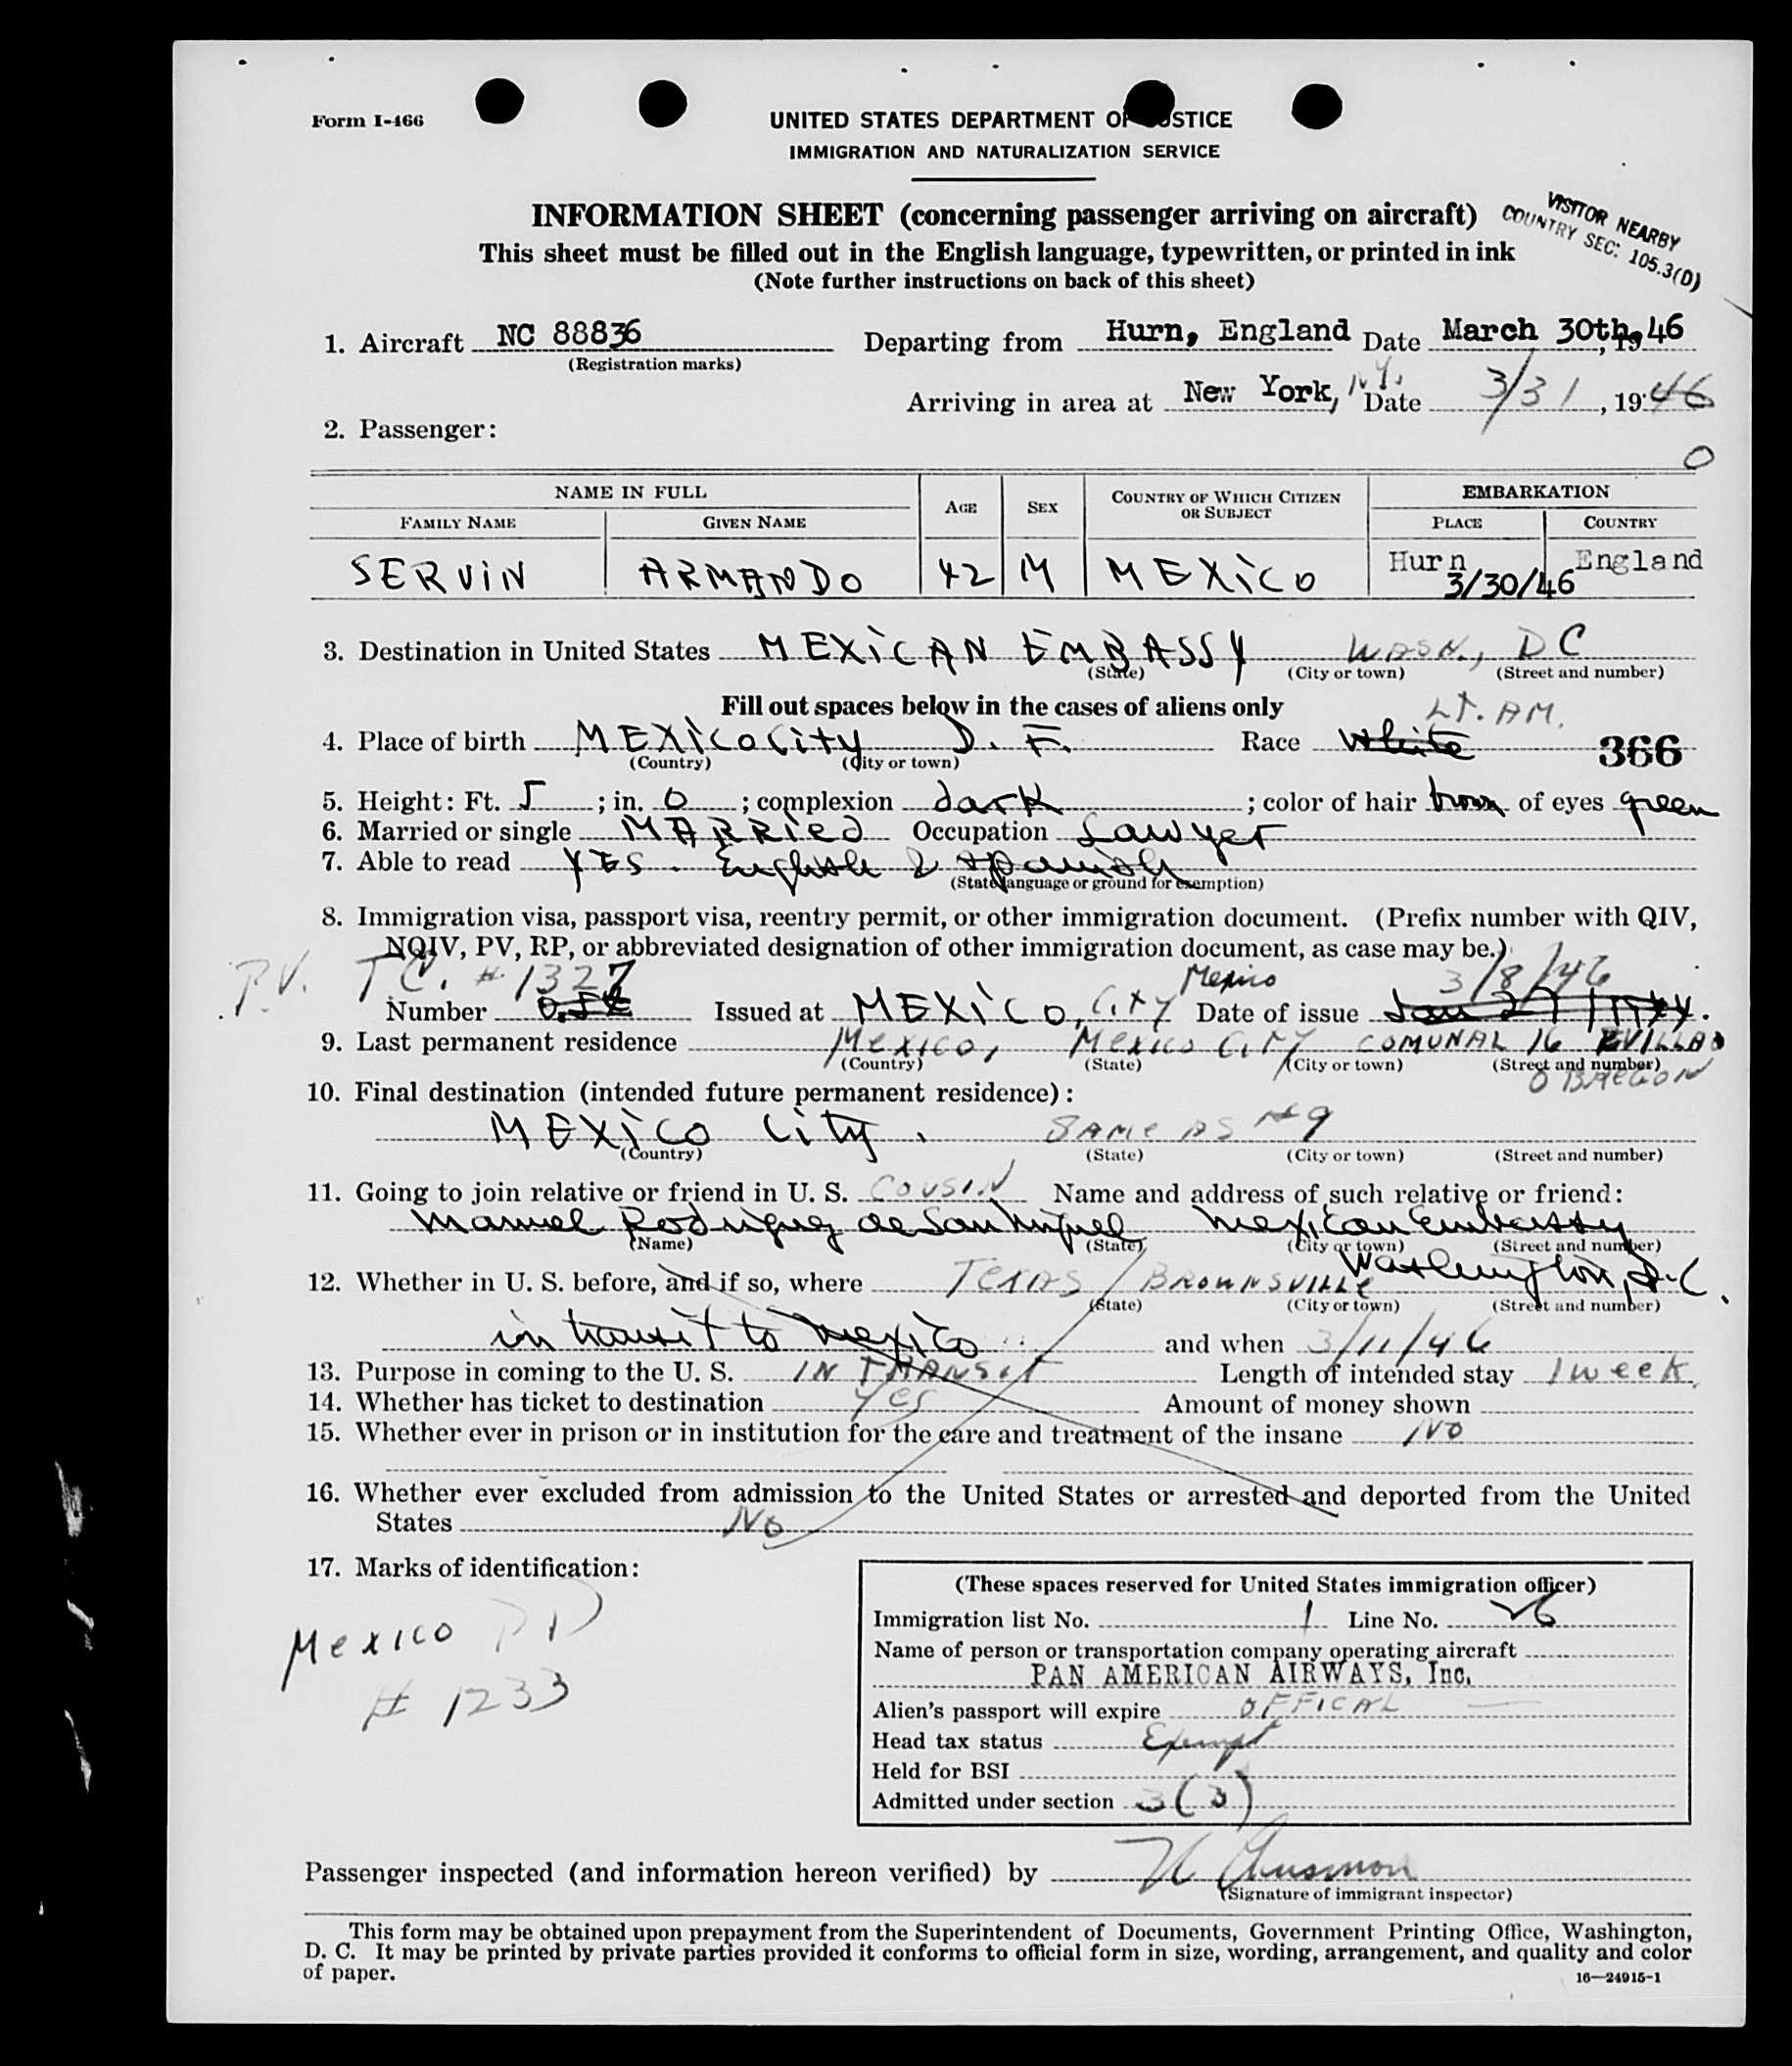 Form I-466
UNITED STATES DEPARTMENT OF JUSTICE
IMMIGRATION AND NATURALIZATION SERVICE
INFORMATION SHEET (concerning passenger arriving on aircraft)
VISITOR NEARBY
COUNTRY SEC: 105.3(D)
This sheet must be filled out in the English language, typewritten, or printed in ink
(Note further instructions on back of this sheet)
1. Aircraft NC 88836 Departing from Hurn, England Date March 30th, 1946
(Registration marks)
Arriving in area at New York, N.Y. Date 3/31, 1946
2. Passenger:
0
NAME IN FULL AGE SEX COUNTRY OF WHICH CITIZEN OR SUBJECT EMBARKATION
FAMILY NAME GIVEN NAME PLACE COUNTRY
SERVIN ARMANDO 42 M MEXICO Hurn England
3/30/46
3. Destination in United States MEXICAN EMBASSY WASH., DC
(State) (City or town) (Street and number)
Fill out spaces below in the cases of aliens only
LT. AM.
4. Place of birth MEXICO City D. F. Race White 366
(Country) (City or town)
5. Height: Ft. 5 ; in. 0 ; complexion dark ; color of hair brown of eyes green
6. Married or single MARRIED Occupation Lawyer
7. Able to read YES. English & Spanish
(State language or ground for exemption)
8. Immigration visa, passport visa, reentry permit, or other immigration document. (Prefix number with QIV,
NQIV, PV, RP, or abbreviated designation of other immigration document, as case may be.)
P.V. T.C. # 1327 Mexico 3/8/46
Number Issued at MEXICO, City Date of issue
9. Last permanent residence Mexico, Mexico City COMUNAL 16 VILLA
(Country) (State) (City or town) (Street and number)
OBREGON
10. Final destination (intended future permanent residence):
MEXICO City. SAME AS #9
(Country) (State) (City or town) (Street and number)
11. Going to join relative or friend in U. S. COUSIN Name and address of such relative or friend:
Manuel Rodriguez de San Miguel Mexican Embassy
(Name) (State) (City or town) (Street and number)
Washington, D.C.
12. Whether in U. S. before, and if so, where TEXAS BROWNSVILLE
(State) (City or town) (Street and number)
in transit to Mexico and when 3/11/46
13. Purpose in coming to the U. S. IN TRANSIT Length of intended stay 1 week
14. Whether has ticket to destination Yes Amount of money shown
15. Whether ever in prison or in institution for the care and treatment of the insane NO
16. Whether ever excluded from admission to the United States or arrested and deported from the United
States No
17. Marks of identification:
Mexico PD
# 1233
(These spaces reserved for United States immigration officer)
Immigration list No. 1 Line No. 26
Name of person or transportation company operating aircraft
PAN AMERICAN AIRWAYS, Inc.
Alien's passport will expire OFFICAL
Head tax status Exempt
Held for BSI
Admitted under section 3(3)
Passenger inspected (and information hereon verified) by
(Signature of immigrant inspector)
This form may be obtained upon prepayment from the Superintendent of Documents, Government Printing Office, Washington,
D. C. It may be printed by private parties provided it conforms to official form in size, wording, arrangement, and quality and color
of paper.
16—24915-1